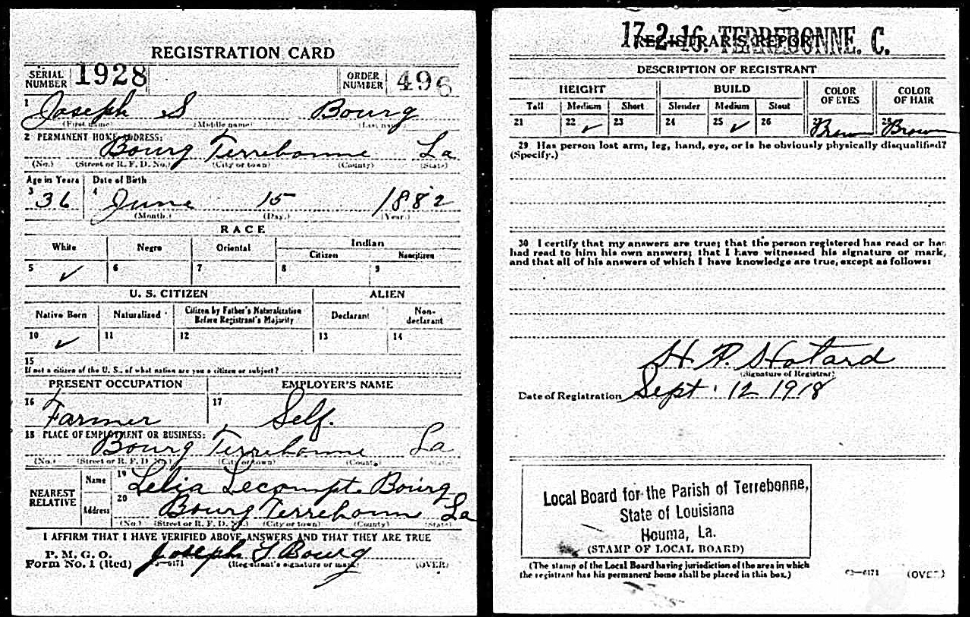 REGISTRATION CARD
SERIAL NUMBER 1928
ORDER NUMBER 496
1 Joseph S Bourg
(First name) (Middle name) (Last name)
2 PERMANENT HOME ADDRESS:
Bourg Terrebonne La
(No.) (Street or R. F. D. No.) (City or town) (County) (State)
Age in Years Date of Birth
3 36 4 June 15 1882
(Month.) (Day.) (Year.)
RACE
White Negro Oriental Indian
Citizen Noncitizen
5 ✓ 6 7 8 9
U. S. CITIZEN ALIEN
Native Born Naturalized Citizen by Father's Naturalization Before Registrant's Majority Declarant Non-declarant
10 ✓ 11 12 13 14
15
If not a citizen of the U. S., of what nation are you a citizen or subject?
PRESENT OCCUPATION EMPLOYER'S NAME
16 Farmer 17 Self.
18 PLACE OF EMPLOYMENT OR BUSINESS:
Bourg Terrebonne La
(No.) (Street or R. F. D. No.) (City or town) (County) (State)
NEAREST RELATIVE
Name 19 Lelia Lecompt Bourg
Address 20 Bourg Terrebonne La
(No.) (Street or R. F. D. No.) (City or town) (County) (State)
I AFFIRM THAT I HAVE VERIFIED ABOVE ANSWERS AND THAT THEY ARE TRUE
P. M. G. O.
Form No. 1 (Red) 03—6171 Joseph S Bourg
(Registrant's signature or mark) (OVER)
17-2-16. TERREBONNE. C.
REGISTRAR'S REPORT
DESCRIPTION OF REGISTRANT
HEIGHT BUILD COLOR OF EYES COLOR OF HAIR
Tall Medium Short Slender Medium Stout
21 22 ✓ 23 24 25 ✓ 26 27 Brown 28 Brown
29 Has person lost arm, leg, hand, eye, or is he obviously physically disqualified?
(Specify.)
30 I certify that my answers are true; that the person registered has read or has
had read to him his own answers; that I have witnessed his signature or mark,
and that all of his answers of which I have knowledge are true, except as follows:
H. P. Hotard
(Signature of Registrar)
Date of Registration Sept. 12 1918
Local Board for the Parish of Terrebonne,
State of Louisiana
Houma, La.
(STAMP OF LOCAL BOARD)
(The stamp of the Local Board having jurisdiction of the area in which
the registrant has his permanent home shall be placed in this box.)
03—6171 (OVER)